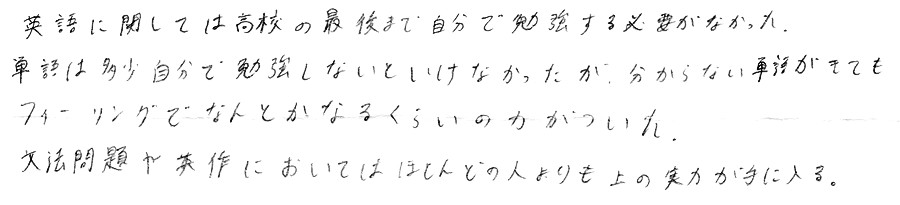 英語に関しては高校の最後まで自分で勉強する必要がなかった.
単語は多少自分で勉強しないといけなかったが、分からない単語がきても
フィーリングでなんとかなるくらいの力がついた.
文法問題や英作においてはほとんどの人よりも上の実力が手に入る。